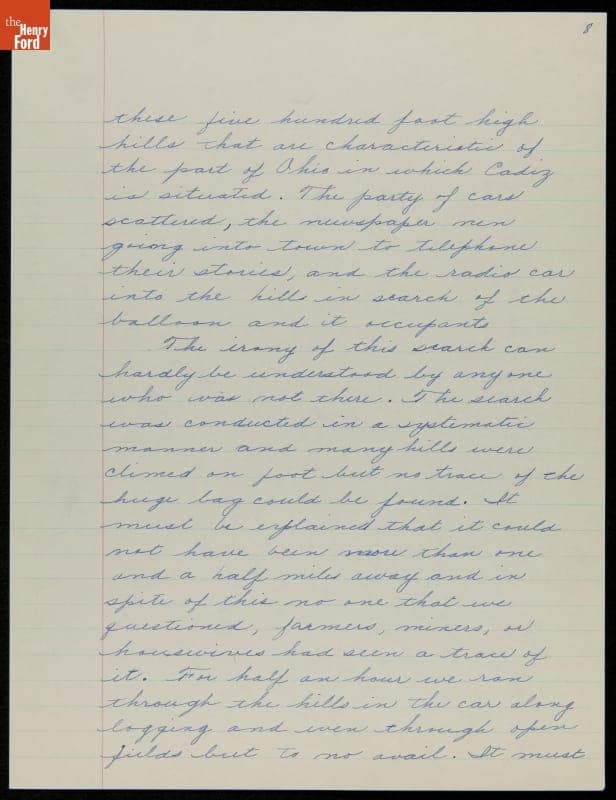 the
Henry
Ford
8
these five hundred foot high
hills that are characteristic of
the part of Ohio in which Cadiz
is situated. The party of cars
scattered, the newspaper men
going into town to telephone
their stories, and the radio car
into the hills in search of the
balloon and it occupants
The irony of this search can
hardly be understood by anyone
who was not there. The search
was conducted in a systematic
manner and many hills were
climed on foot but no trace of the
huge bag could be found. It
must be explained that it could
not have been more than one
and a half miles away and in
spite of this no one that we
questioned, farmers, miners, or
housewives had seen a trace of
it. For half an hour we ran
through the hills in the car along
logging and even through open
fields but to no avail. It must